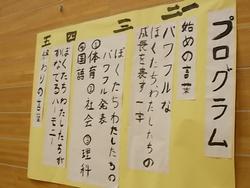 プログラム
一 始めの言葉
二 パワフルな
ぼくたちわたしたちの
成長を表す一字
三 ぼくたちわたしたちの
パワフル発表
①体育②社会③理科
④国語
四 ぼくたちわたしたちが
かなでるハーモニー
五 終わりの言葉